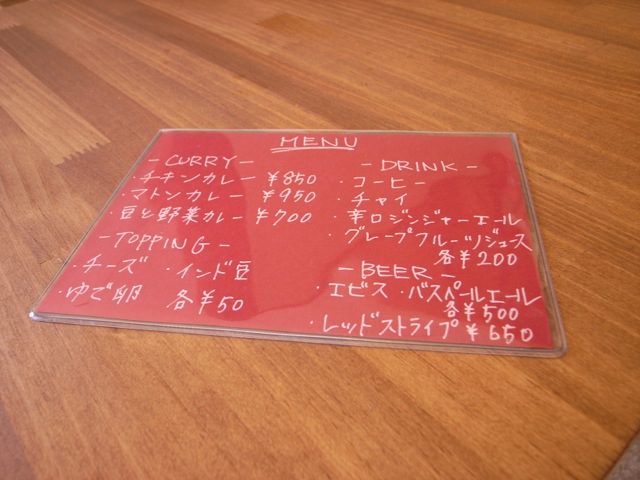 MENU
- CURRY -
・チキンカレー ¥850
・マトンカレー ¥950
・豆と野菜カレー ¥700
- TOPPING -
・チーズ ・インド豆
・ゆで卵 各¥50
- DRINK -
・コーヒー
・チャイ
・辛口ジンジャーエール
・グレープフルーツジュース
各¥200
- BEER -
・エビス ・バスペールエール
各¥500
・レッドストライプ ¥650